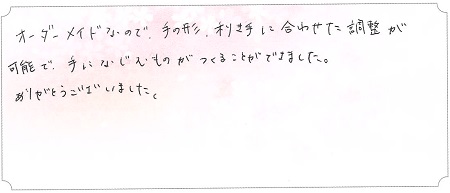 オーダーメイドなので、手の形、利き手に合わせた調整が
可能で、手になじむものがつくることができました。
ありがとうございました。